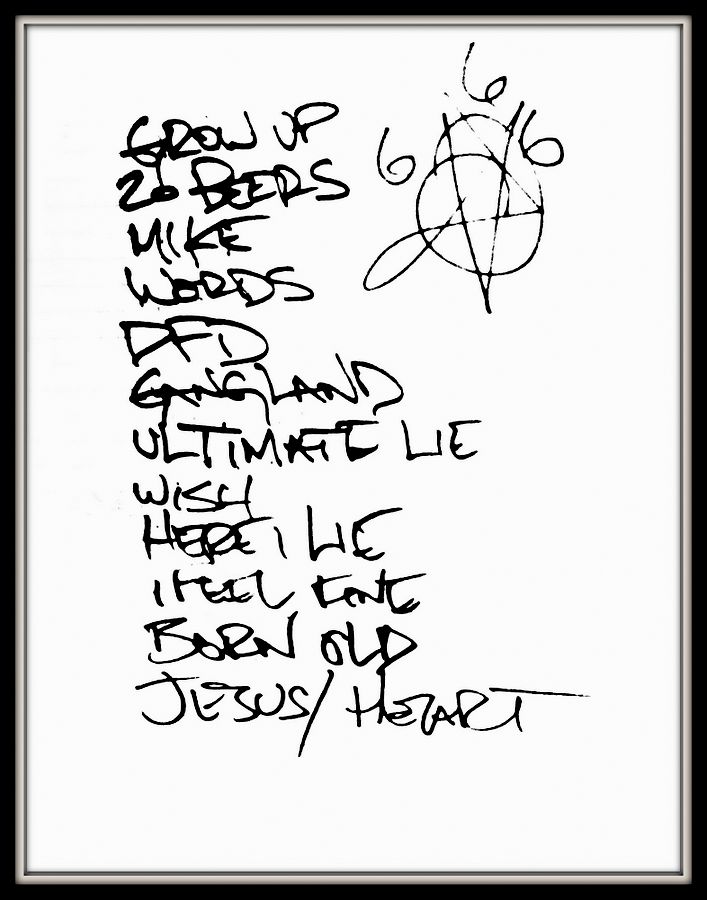 6
6 6
GROW UP
20 BEERS
MIKE
WORDS
DFD
GANGLAND
ULTIMATE LIE
WISH
HERE I LIE
I FEEL FINE
BORN OLD
JESUS/HEART